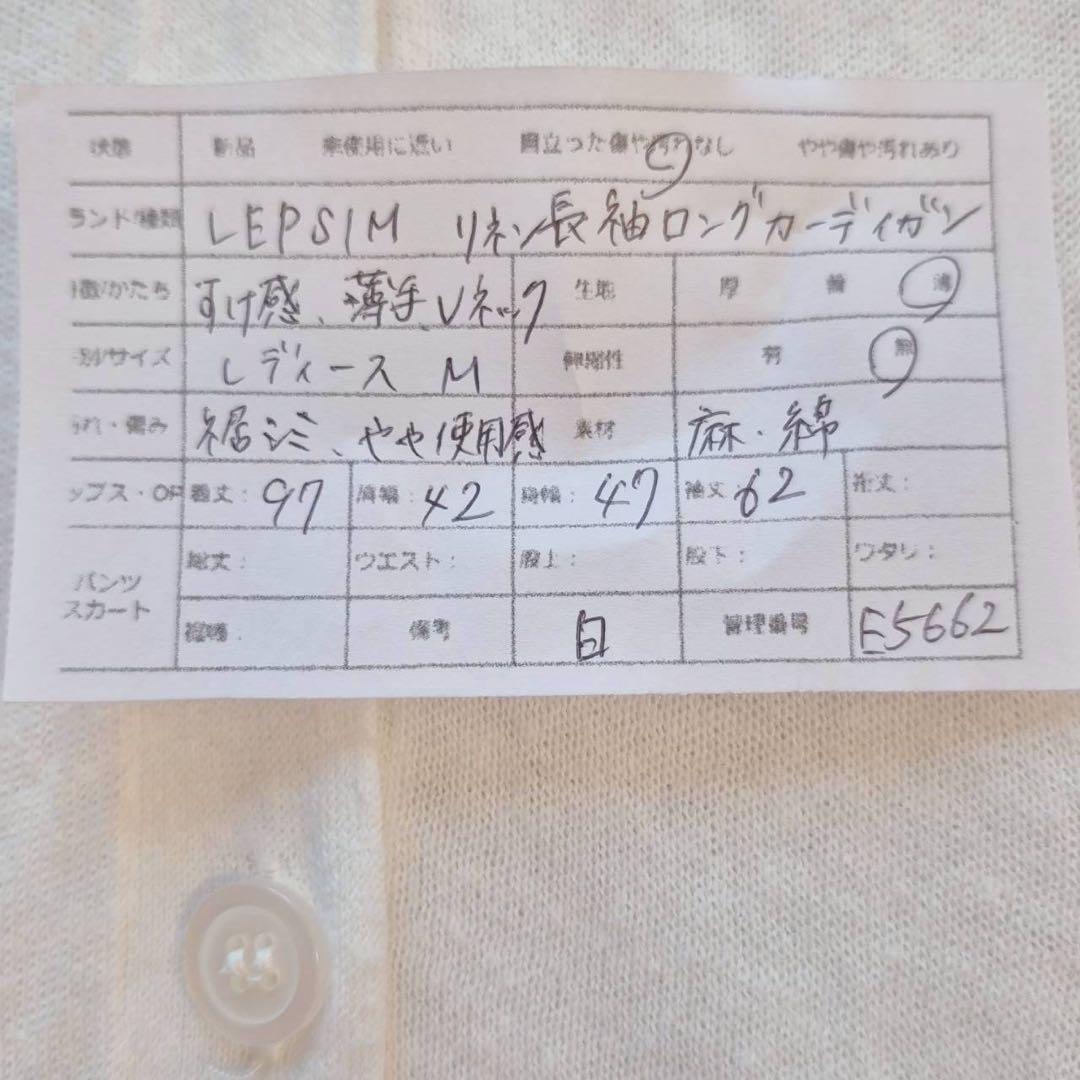 状態 新品 未使用に近い 目立った傷や汚れなし やや傷や汚れあり
ランド/種類 LEPSIM リネン長袖ロングカーディガン
種/かたち すけ感、薄手、Vネック 生地 厚 普 薄
別/サイズ レディース M 伸縮性 有 無
られ・傷み 裾シミ、やや使用感 素材 麻・綿
ップス・OP 着丈: 97 肩幅: 42 身幅: 47 袖丈: 62 裄丈:
パンツ スカート 総丈: ウエスト: 股上: 股下: ワタリ:
裾幅: 備考 白 管理番号 E5662